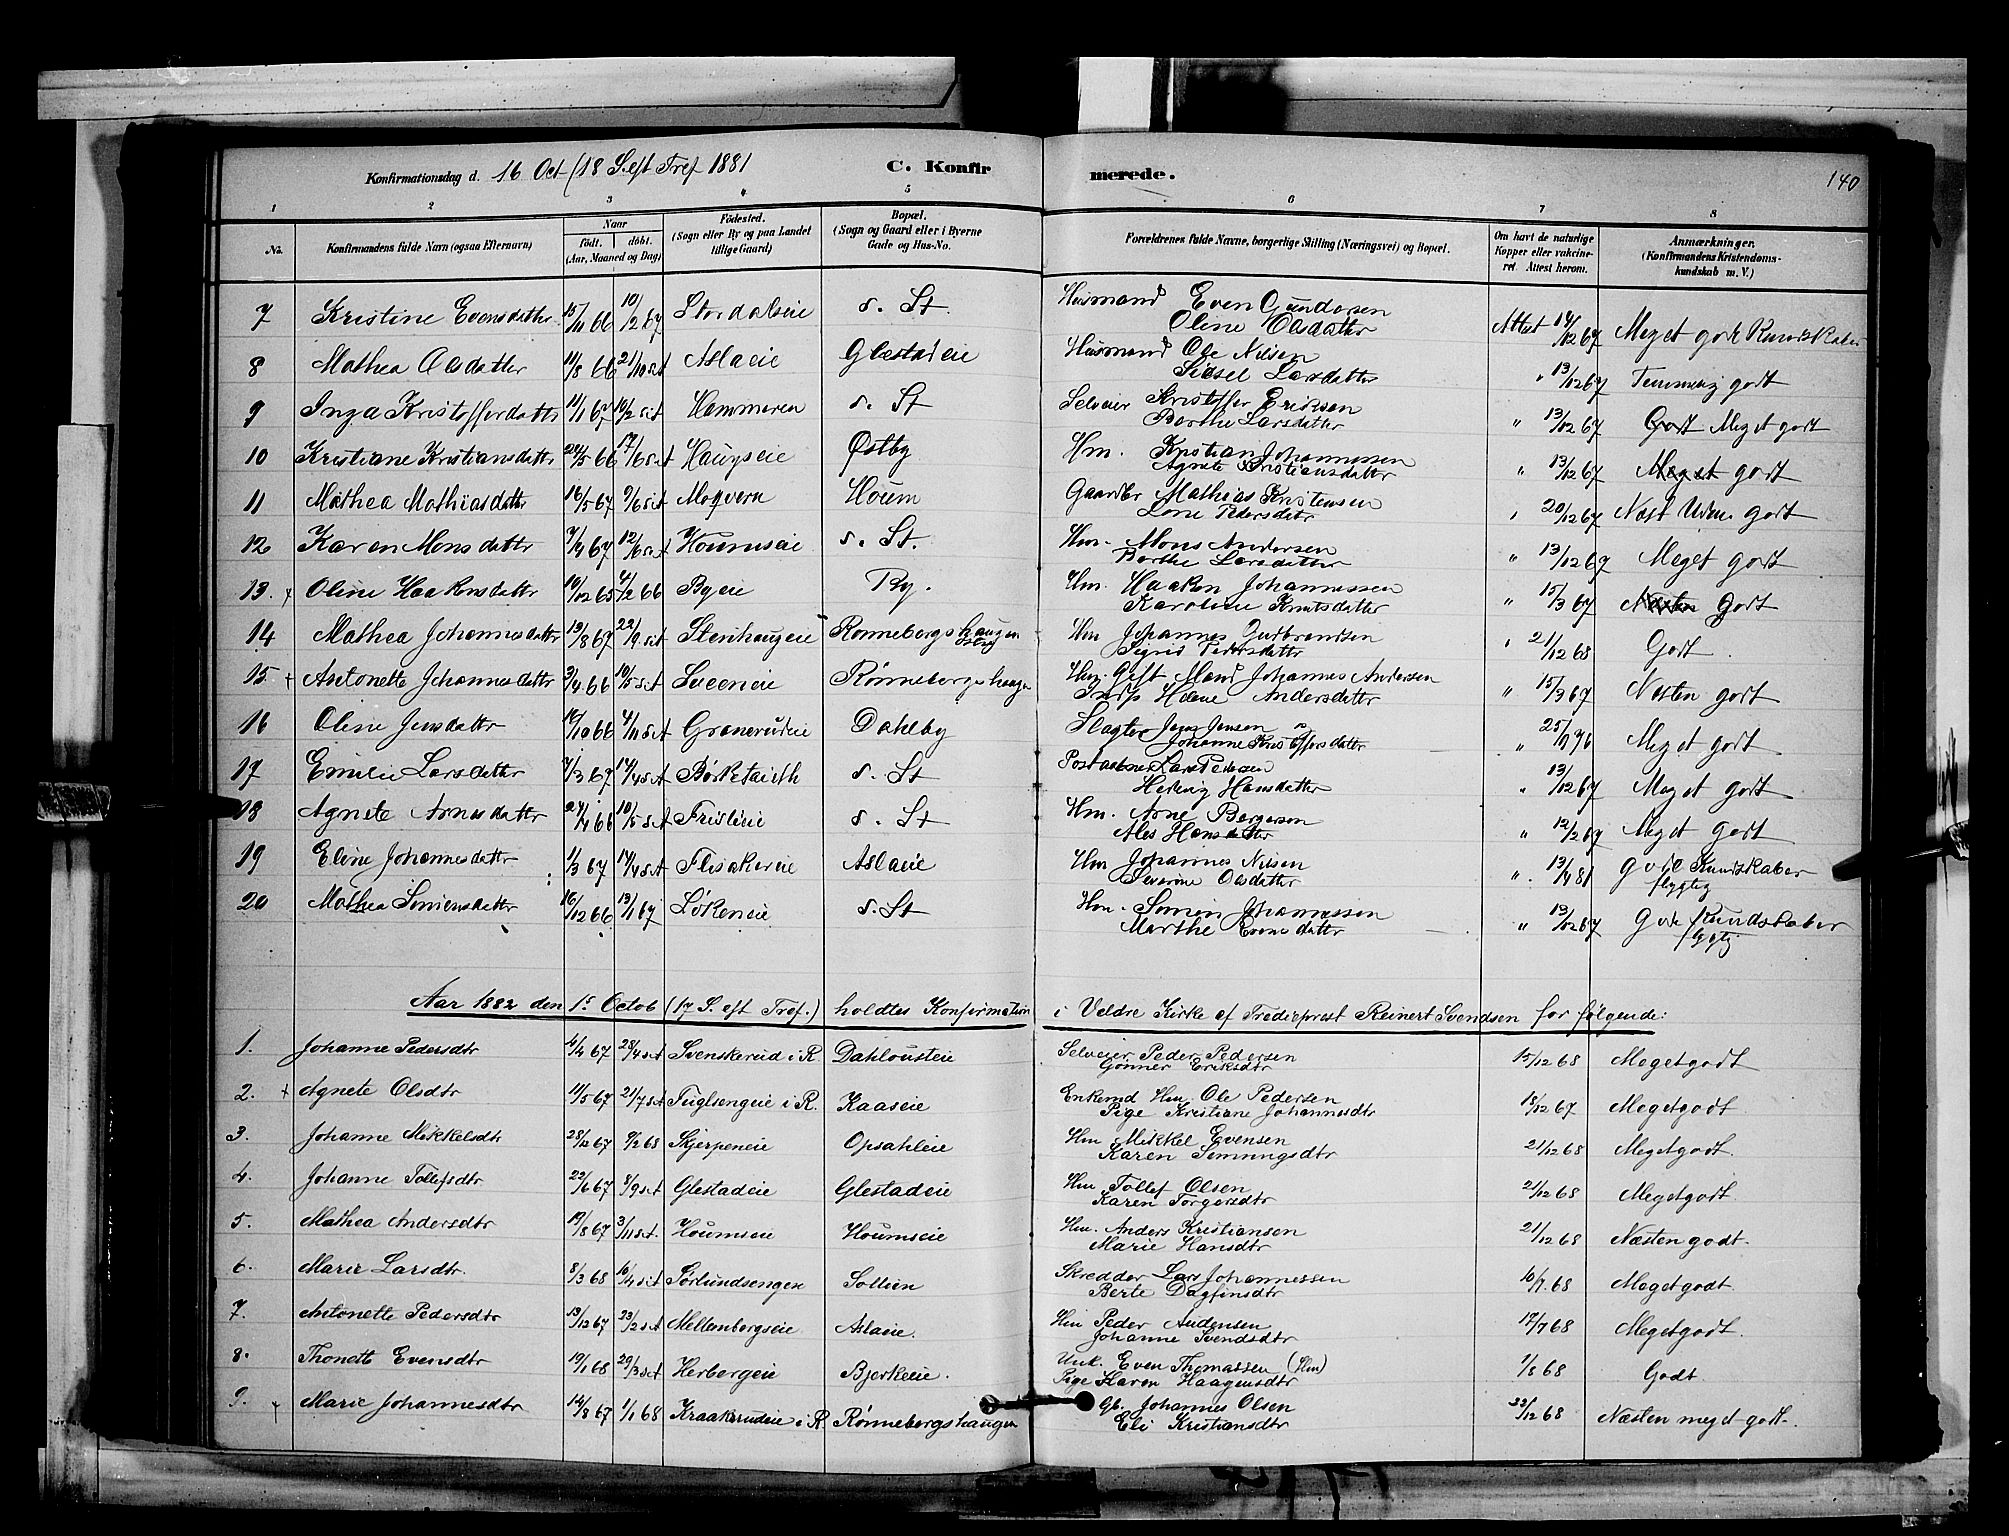 Konfirmationsdag d. 16 Oct (18 S. eft Tref 1881 C. Konfir merede. 140
1 2 3 4 5 6 7 8
No. Konfirmandens fulde Navn (ogsaa Efternavn) Naar født. døbt. (Aar, Maaned og Dag) Fødested. (Sogn eller By og paa Landet tillige Gaard) Bopæl. (Sogn og Gaard eller i Byerne Gade og Hus-No. Forældrenes fulde Navne, borgerlige Stilling (Næringsvei) og Bopæl. Om havt de naturlige Kopper eller vakcineret Attest herom. Anmærkninger. (Konfirmandens Kristendomskundskab m. V.)
7 Kristine Evensdatter 15/11 66 10/12 67 Stordalseie s. St. Husmand Even Gundersen Oline Olsdatter Attest 14/12 67 Meget gode Kundskaber
8 Mathea Olsdatter 11/8 66 21/10 s.A Aslaeie Glestadeie Husmand Ole Nilsen Sidsel Larsdatter " 13/12 67 Temmelig godt
9 Inga Kristofferdattr 11/1 67 10/2 s.A Hammeren s. St Selveier Kristoffer Eriksen Berthe Larsdatter " 13/12 67 Godt Meget godt
10 Kristiane Kristiansdattr 24/5 66 17/6 s.A Haugseie Østby Hm. Kristian Johannessen Agnete Kristiansdatter " 13/12 67 Meget godt
11 Mathea Mathiasdattr 16/5 67 9/6 s.A Moqvern Houm Gaardbr Mathias Kristensen Lone Pedersdatr " 20/12 67 godt
12 Karen Monsdattr 7/4 67 12/6 s.A Houmseie s. St. Hm. Mons Andersen Berthe Larsdatter " 13/12 67 Meget godt
13. + Oline Haakonsdattr 10/12 65 4/2 66 Byeie By. Hm. Haakon Johannessen Karoline Knutsdatter " 15/3 67 Næsten Godt
14 Mathea Johannesdattr 13/8 67 22/9 s.A Stenhaugeie Rønnebergshaugen Hm Johannes Gudbrandsen Sigrid Pedersdattr " 21/12 68 Godt.
15. + Antonette Johannesdattr 3/4 66 10/5 s.A Sveeneie Rønnebergshaugen Hm. Gift Mand Johannes Andersen Indp Helene Andersdatter " 15/3 67 Næsten godt
16 Oline Jensdattr 14/10 66 4/11 s.A Granerudeie Dahlby Slagter Jens Jensen Johanne Kristoffersdatter " 25/9 76 Meget godt
17 Emilie Larsdatter 7/3 67 14/4 s.A s. St Lars Pedersen Hedvig Hansdatter " 13/12 67 Meget godt
18 Agnete Arnesdattr 24/4 66 10/5 s.A Frislieie s. St Hm. Arne Bergersen Ales Hansdatter " 12/2 67 Meget godt
19 Eline Johannesdattr 1/3 67 14/4 s.A Flisakereie Aslaeie Hm Johannes Nilsen Severine Olsdatter " 13/4 81 gode Kundskaber flygtig
20 Mathea Simensdattr 16/12 66 13/1 67 Løkeneie s. St Hm. Simen Johannessen Marthe Evensdattr " 13/12 67 gode Kundskaber flygtig
Aar 1882 den 1s Octob (17 S. eft Tref.) holdtes Konfirmation i Veldre Kirke af Trediepræst Reinert Svendsen for følgende:
1. Johanne Pedersdtr 6/4 67 28/4 s.A Svenskerud i R Dahlousteie Selveier Peder Pedersen Gønner Eriksdtr 15/12 68 Meget godt
2. + Agnete Olsdtr 11/5 67 21/7 s.A Fuglsengeie i R. Kaaseie Enkemd Hm. Ole Pedersen Pige Kristiane Johannesdtr 18/12 67 Meget godt.
3. Johanne Mikkelsdtr 28/12 67 9/2 68 Skjerpeneie Opsahleie Hm Mikkel Evensen Karen Semmingsdtr 21/12 68 Meget godt.
4. Johanne Tollefsdtr 22/6 67 8/9 s.A Glestadeie Glestadeie Hm Tollef Olsen Karen Torgersdtr 21/12 68 Meget godt.
5. Mathea Andersdtr 19/8 67 3/11 s.A. Houmseie Houmseie Hm. Anders Kristiansen Marie Hansdtr 21/12 68 Næsten godt.
6. Marie Larsdtr. 8/3 68 16/4 s.A Sørlundsengen Sollien Skrædder Lars Johannessen Berte Dagfinsdtr 10/7 68 Meget godt.
7. Antonette Pedersdtr 13/12 67 23/2 s.A Mellembergseie Aslaeie. Hm Peder Andersen Johanne Svendsdtr 17/7 68 Meget godt.
8. Thonette Evensdtr 19/1 68 29/3 s.A Herbergeie Bjerkeie. Unk. Even Thomassen (Hm) Pige Karen Haagensdtr 1/8 68 Godt
9. + Marie Johannesdtr 14/8 67 1/1 68 Kraakerudeie i R. Rønnebergshaugen Gb. Johannes Olsen Eli Kristiansdtr 23/12 68 Næsten meget godt.